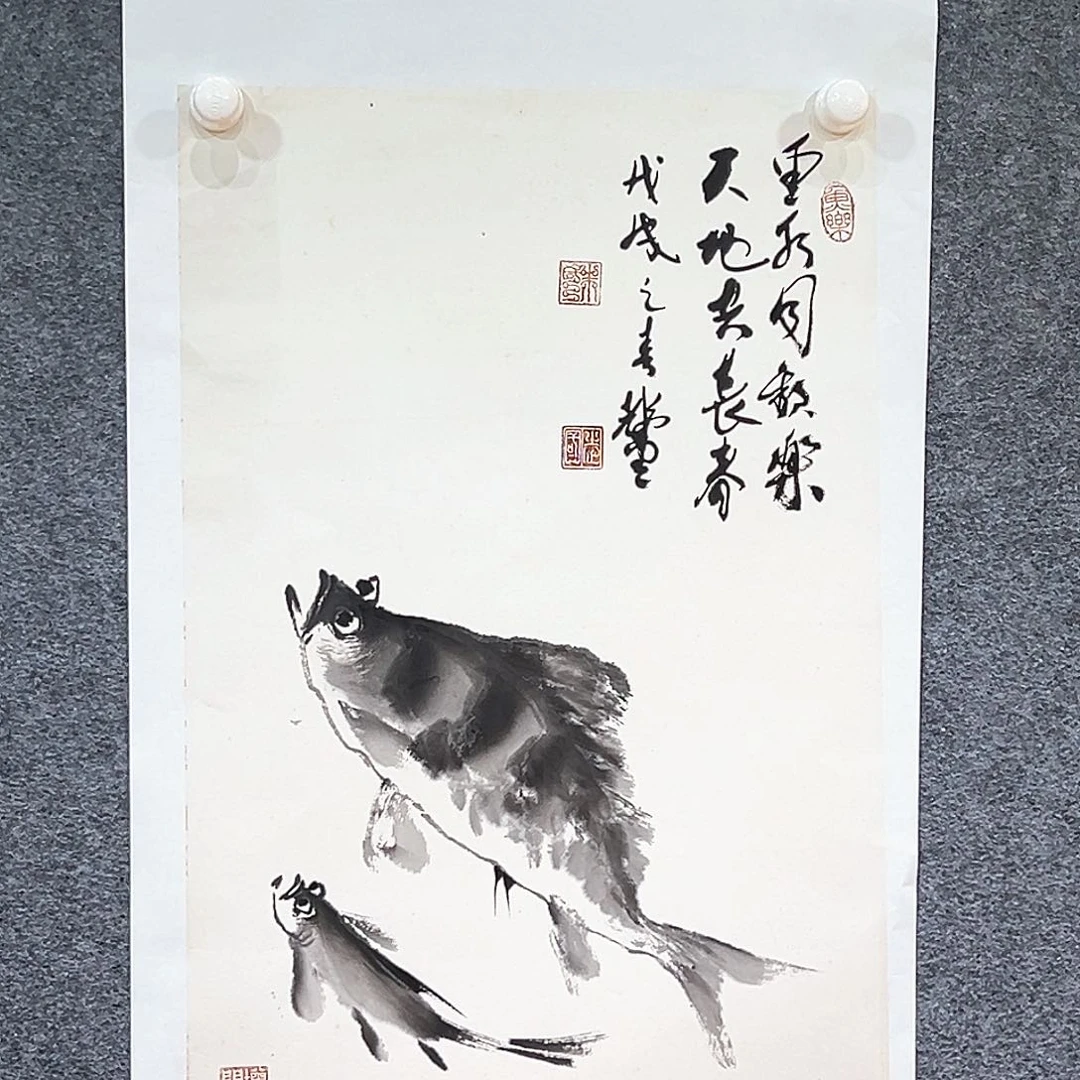 魚樂
雲水同歡樂
天地共長春
戊戌之春